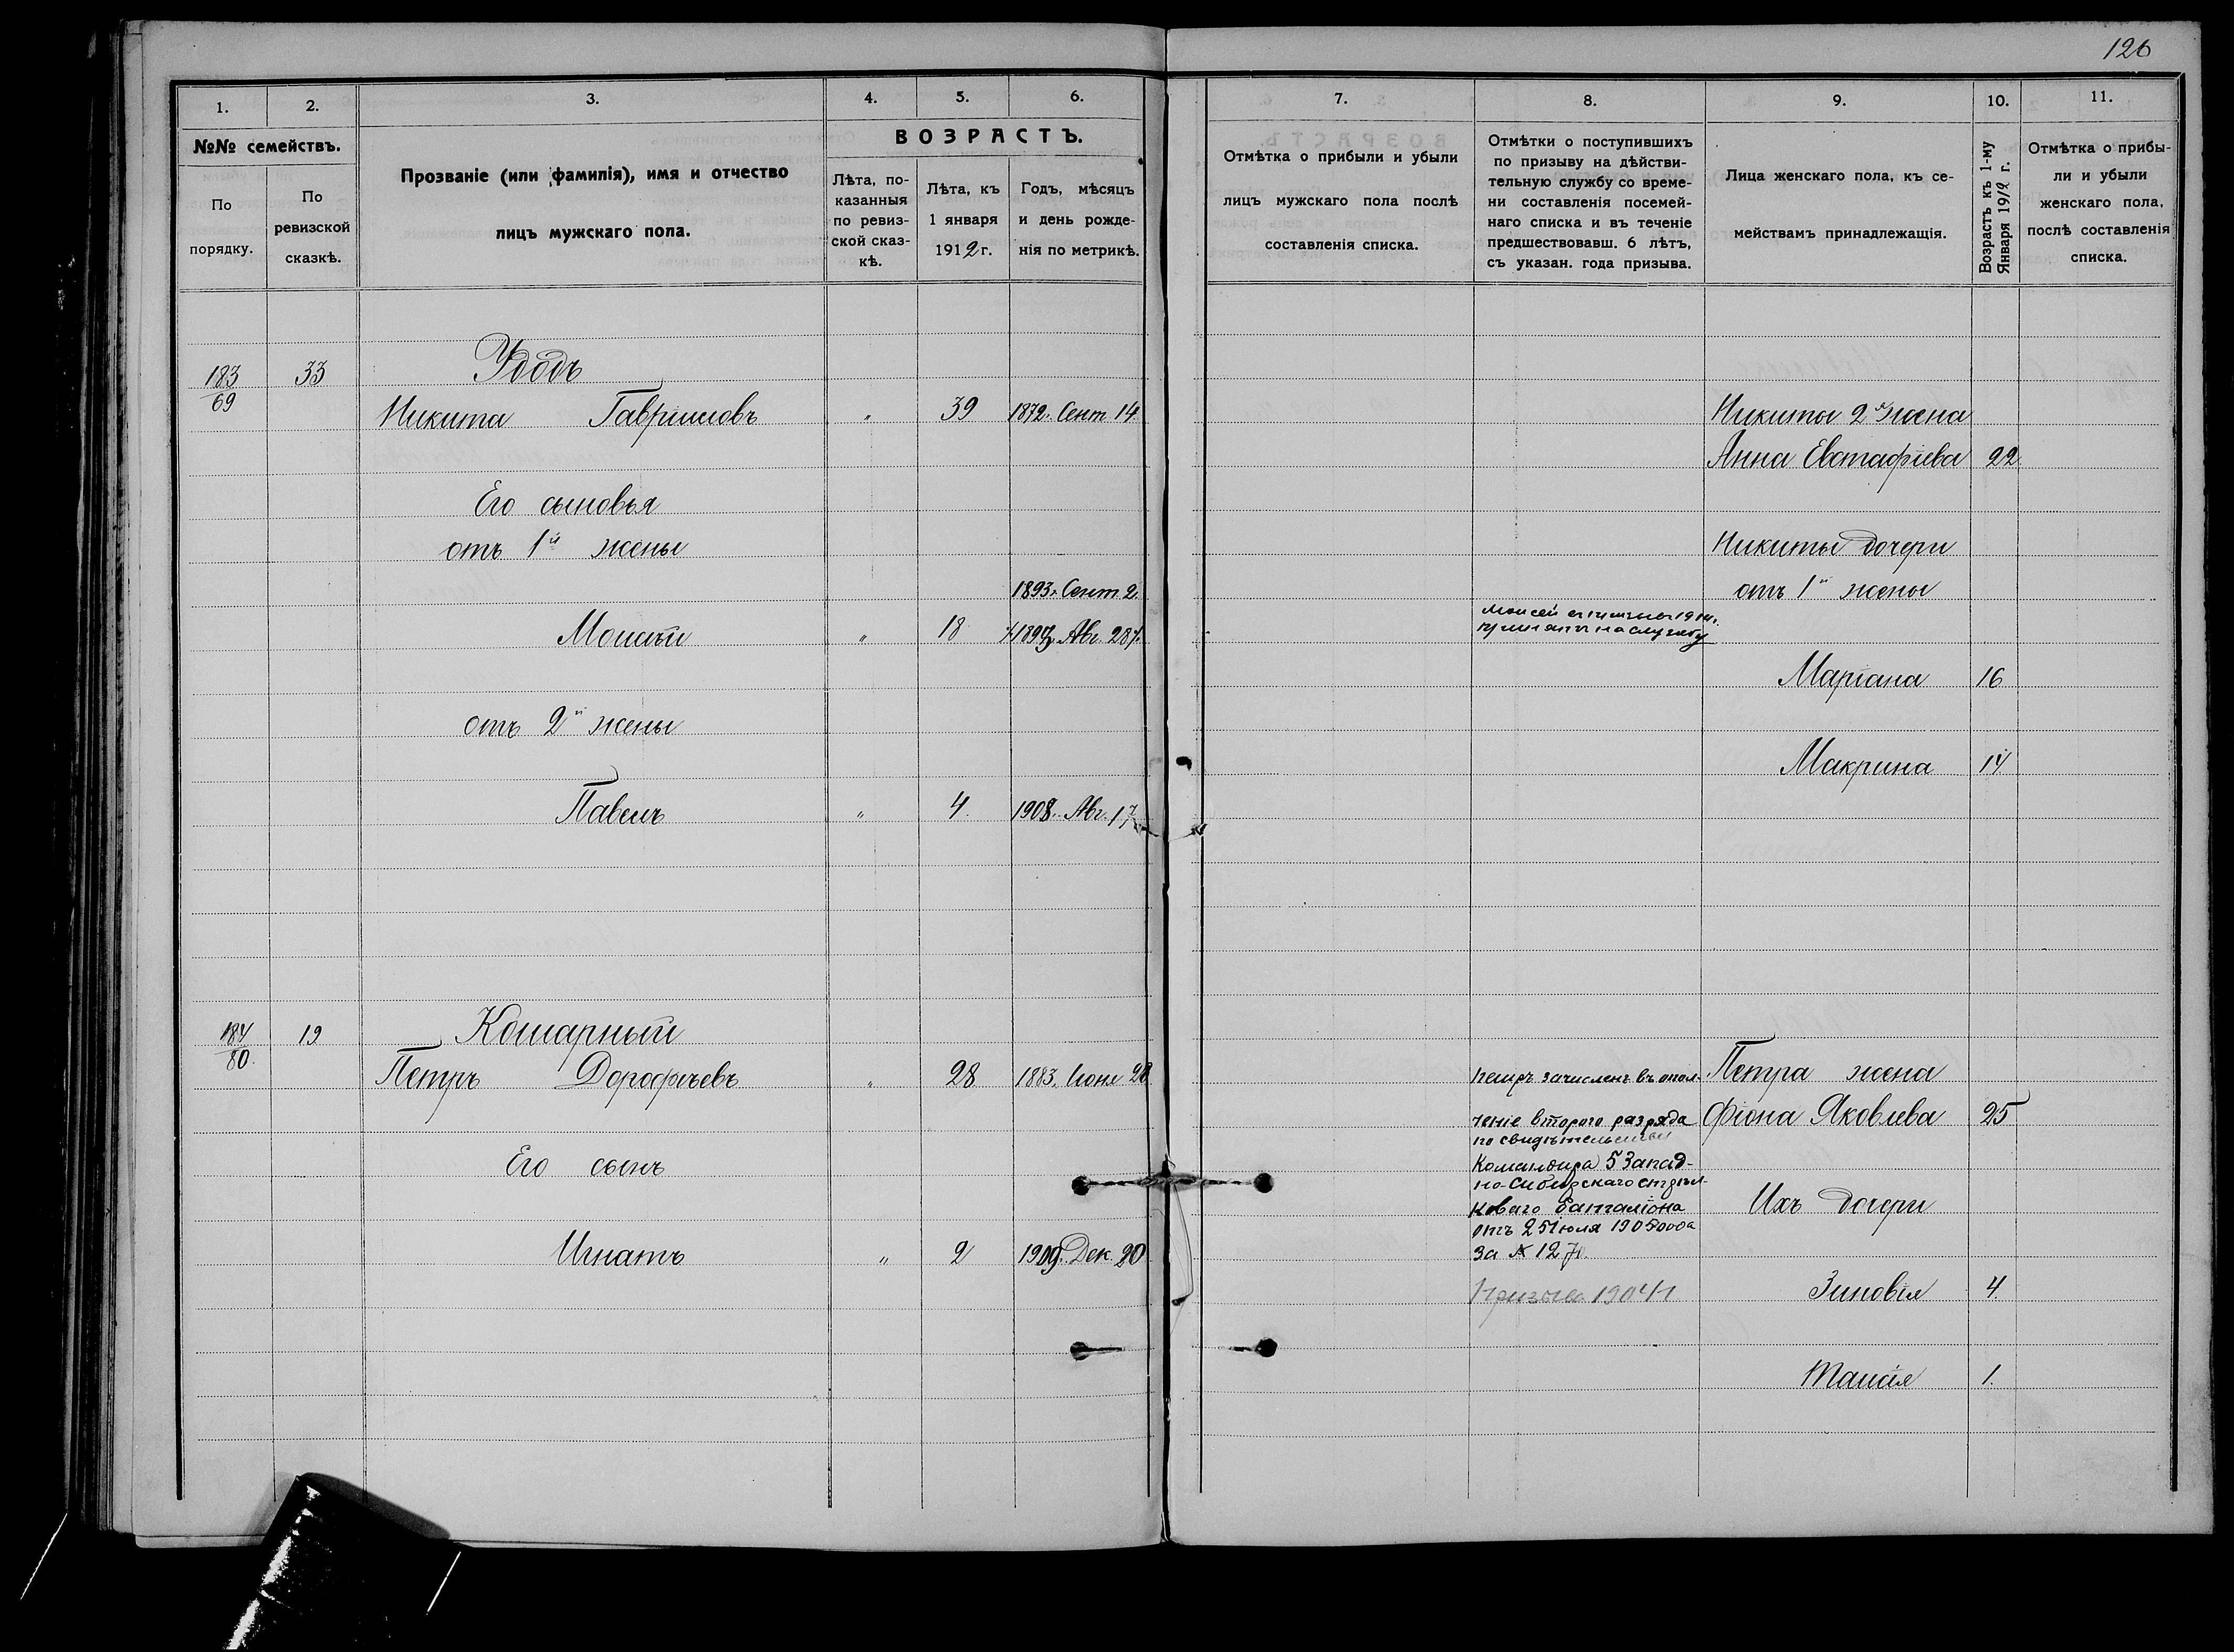 126
1.
2.
3.
4.
5.
6.
№№ семействъ.
По
порядку.
По
ревизской
сказкѣ.
Прозваніе (или фамилія), имя и отчество
лицъ мужскаго пола.
ВОЗРАСТЪ.
Лѣта, по-
казанныя
по ревиз-
ской сказ-
кѣ.
Лѣта, къ
1 января
1912 г.
Годъ, мѣсяцъ
и день рожде-
нія по метрикѣ.
183
69
33
Удодъ
Никита Гавриловъ " 39 1872. Сент. 14.
Его сыновья
отъ 1й жены
1893. Сент. 2.
Моисей " 18 1893. Авг. 28
отъ 2й жены
Павелъ " 4. 1908. Авг. 17
184
80.
19
Кошарный
Петръ Дорофѣевъ " 28 1883. Іюня 28
Его сынъ
Игнатъ " 2 1909. Дек. 20
7.
8.
9.
10.
11.
Отмѣтка о прибыли и убыли
лицъ мужскаго пола послѣ
составленія списка.
Отмѣтки о поступившихъ
по призыву на дѣйстви-
тельную службу со време-
ни составленія посемей-
наго списка и въ теченіе
предшествовавш. 6 лѣтъ,
съ указан. года призыва.
Лица женскаго пола, къ се-
мействамъ принадлежащія.
Возрастъ къ 1-му
Января 1912 г.
Отмѣтка о прибы-
ли и убыли
женскаго пола,
послѣ составленія
списка.
Никиты 2я жена
Анна Евстафіева 22
Никиты дочери
отъ 1й жены
Моисей 1914.
на службу
Маріана 16
Макрина 14
Петръ зачисленъ въ опол-
ченіе второго разряда
по свидѣтельству
Командира 5 Запад-
но-Сибирскаго стрѣл-
коваго баталіона
отъ 25 іюля 1905 года
за № 127
Призыва 1904 г
Петра жена
Фіона Яковлева 25
Ихъ дочери
Зиновія 4.
Таисія 1.